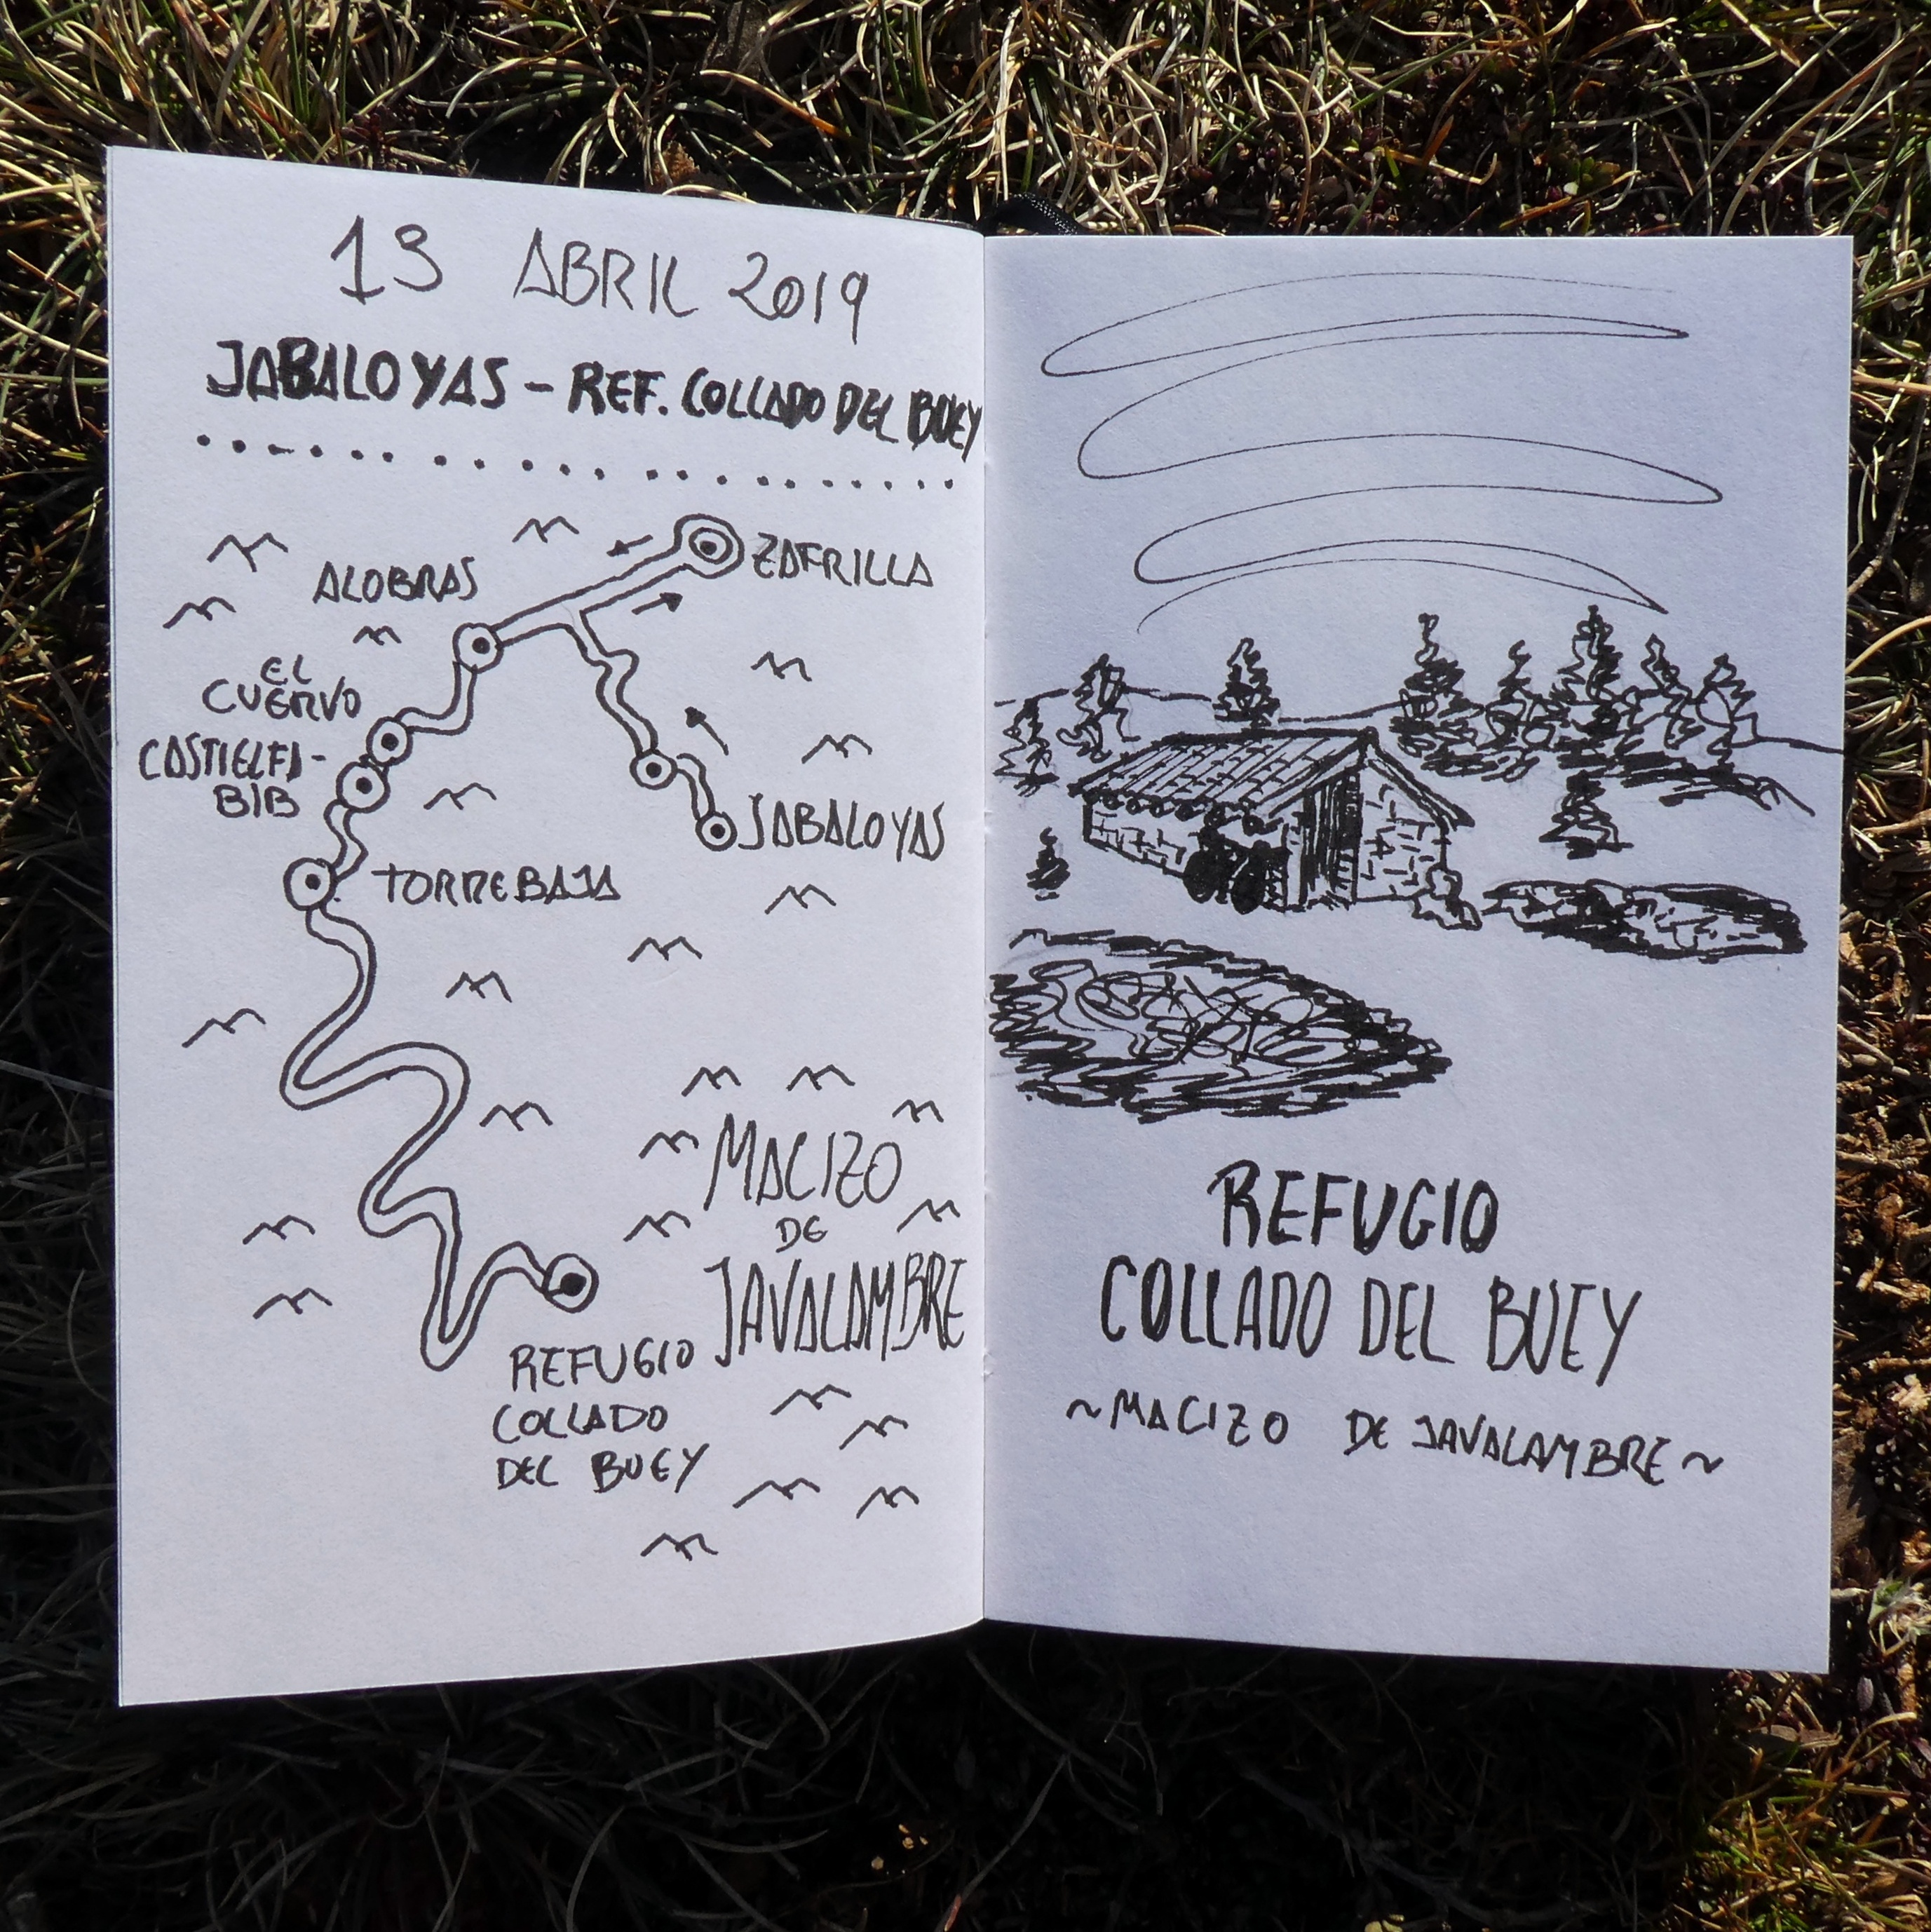 13 ABRIL 2019
JABALOYAS - REF. COLLADO DEL BUEY
ZAFRILLA
ALOBRAS
EL
CUERVO
CASTIELFA-
BIB
JABALOYAS
TORREBAJA
MACIZO
DE
JAVALAMBRE
REFUGIO
COLLADO
DEL BUEY
REFUGIO
COLLADO DEL BUEY
~MACIZO DE JAVALAMBRE~